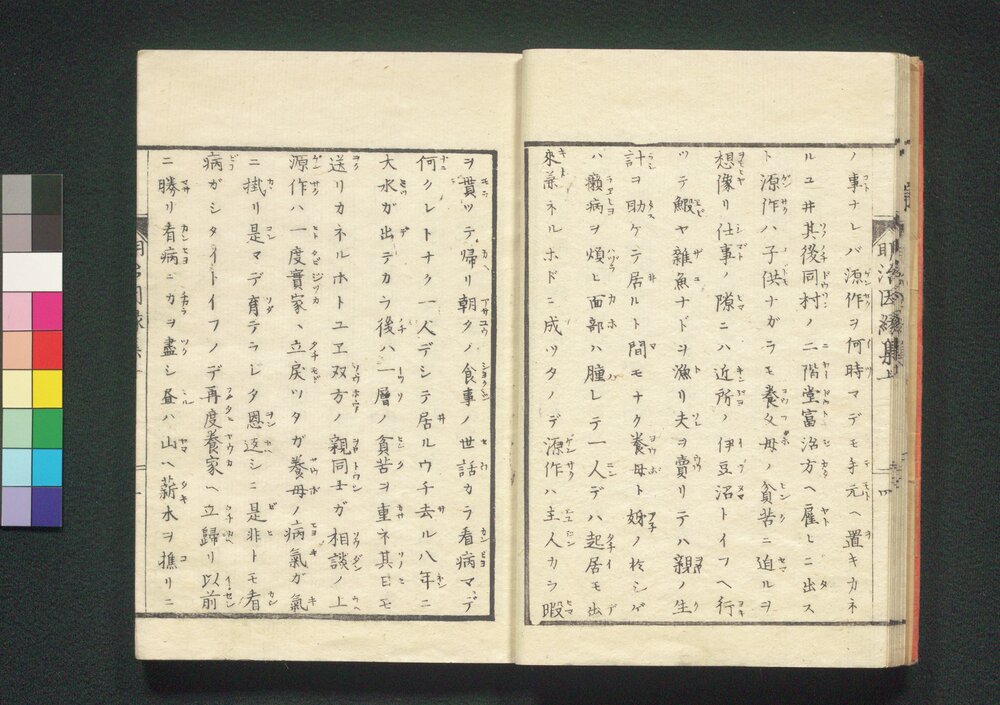 ノ事ナレバ源作ヲ何時マデモ手元ヘ置キカネ
ルユヱ其後同村ノ二階堂富治方ヘ雇レニ出ス
ト源作ハ子供ナガラモ養父母ノ貧苦ニ迫ルヲ
想像リ仕事ノ隙ニハ近所ノ伊豆沼トイフヘ行
ツテ鰕ヤ雑魚ナドヲ漁リ夫ヲ賣リテハ親ノ生
計ヲ助ケテ居ルト間モナク養母ト妍ノ
ハ癩病ヲ煩ヒ面部ハ腫レテ一人デハ起居モ出
來兼ネルホドニ成ツタノデ源作ハ主人カラ暇
明治因縁集上
四
ヲ貰ツテ帰リ朝夕ノ食事ノ世話カラ看病マデ
何クレトナク一人デシテ居ルウチ去ル八年ニ
大水ガ出テカラ後ハ一層ノ貧苦ヲ重ネ其日モ
送リカネルホトユヱ双方ノ親同士ガ相談ノ上
源作ハ一度實家ヘ立戻ツタガ養母ノ病氣ガ氣
ニ掛リ是マデ育テラレタ恩返シニ是非トモ看
病ガシタイトイフノデ再度養家ヘ立歸リ以前
ニ勝リ看病ニカヲ盡シ昼ハ山ヘ薪木ヲ樵リニ